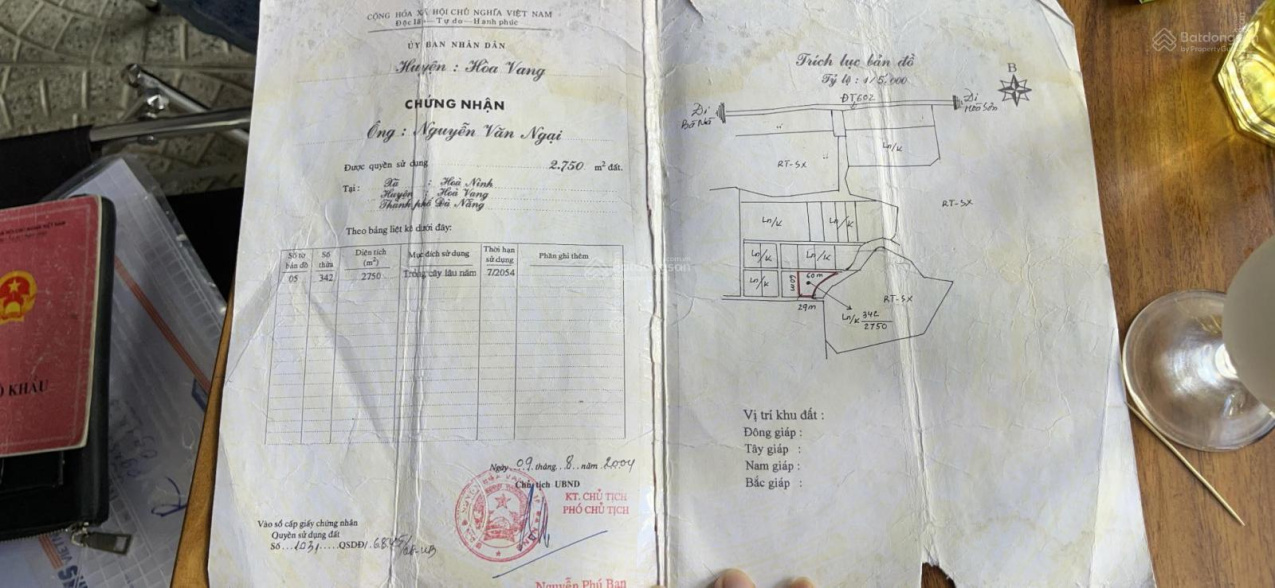 CỘNG HÒA XÃ HỘI CHỦ NGHĨA VIỆT NAM
Độc lập - Tự do - Hạnh phúc
ỦY BAN NHÂN DÂN
Huyện : Hòa Vang
CHỨNG NHẬN
Ông : Nguyễn Văn Ngại
Được quyền sử dụng 2.750 m² đất.
Tại : Xã : Hoà Ninh
Huyện : Hoà Vang
Thành phố Đà Nẵng
Theo bảng liệt kê dưới đây:
Số tờ bản đồ Số thửa Diện tích (m²) Mục đích sử dụng Thời hạn sử dụng Phần ghi thêm
05 342 2750 Trồng cây lâu năm 7/2054
Ngày 09 tháng 8 năm 2004
Chủ tịch UBND
KT. CHỦ TỊCH
PHÓ CHỦ TỊCH
Vào sổ cấp giấy chứng nhận
Quyền sử dụng đất
Số 1031 QSDĐ/
Nguyễn Phú Ban
Trích lục bản đồ
Tỷ lệ : 1/5.000
B
ĐT602
Đi
Bà Nà
Đi
Hòa Sơn
Ln/k
RT-SX
RT-SX
Ln/k
Ln/k
Ln/k
Ln/k
Ln/k
60m
29m
RT-SX
Ln/k 342
2750
Vị trí khu đất :
Đông giáp :
Tây giáp :
Nam giáp :
Bắc giáp :
Batdongsan
by PropertyGuru
Batdongsan
HỘ KHẨU